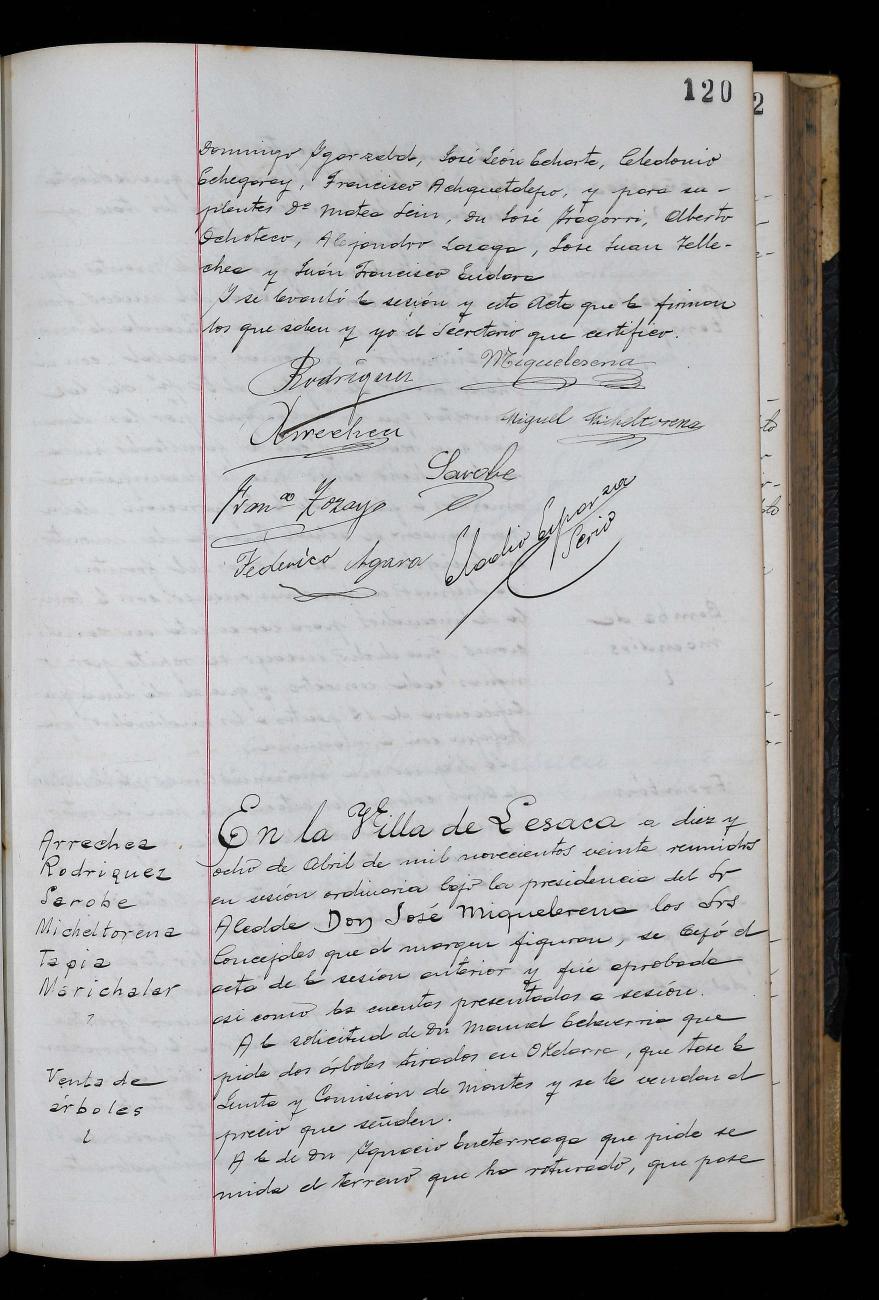 120
2
Domingo Ygarzabal, José León Echarte, Celedonio
Echegaray, Francisco Achquetalepo, y para su-
plentes Dn Mateo Lein, Dn José Iragorri, Alberto
Ochoteco, Alejandro Lasaga, Jose Juan Telle-
chea y Juán Francisco Endara
Y se levantó la sesión y esta Acta que la firman
los que saben y yo el Secretario que certifico.
Rodríguez
Miquelerena
Arrechea
Miguel Micheltorena
Sarobe
Franco Zozaya
Eladio Esparza
Serio
Federico Agara
En la Villa de Lesaca a diez y
ocho de Abril de mil novecientos veinte reunidos
en sesión ordinaria bajo la presidencia del Sr
Alcalde Don José Miquelerena los Srs
Concejales que al margen figuran, se leyó el
acta de la sesión anterior y fué aprobada
asi como las cuentas presentadas a sesión.
A la solicitud de Dn Manuel Echeverria que
pide dos árboles tirados en Oxelarre, que tase la
Junta y Comisión de Montes y se le vendan al
precio que señalen.
A la de Dn Ygnacio Eneterreaga que pide se
mida el terreno que ha roturado, que pase
Arrechea
Rodriguez
Sarobe
Micheltorena
Tapia
Marichalar
Venta de
árboles